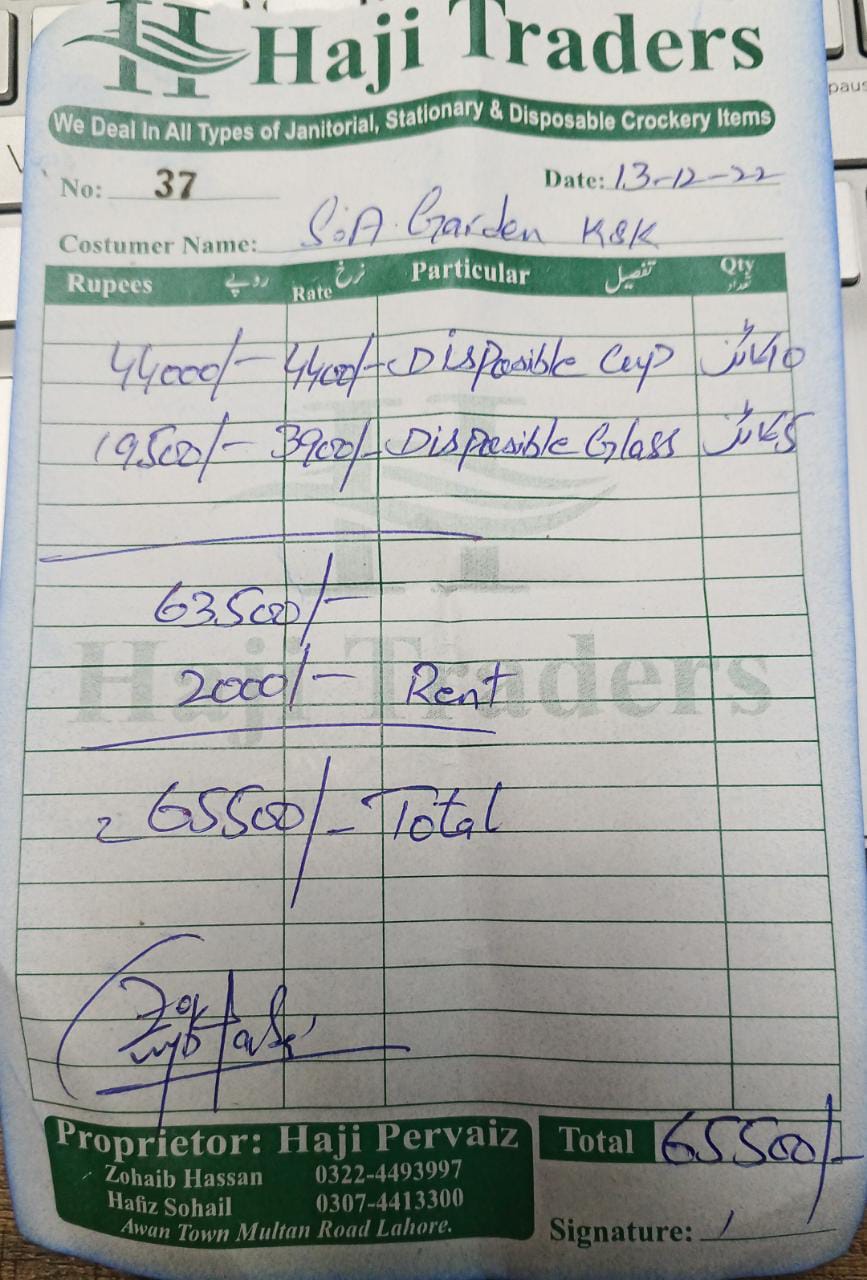 Haji Traders
We Deal In All Types of Janitorial, Stationary & Disposable Crockery Items
No: 37
Date: 13-12-22
Costumer Name: S.A. Garden K&K
Rupees روپے Rate نرخ Particular تفصیل Qty تعداد
44000/- 4400/- Disposible Cup 10 کاٹن
19500/- 3900/- Disposible Glass 5 کاٹن
63500/-
2000/- Rent
65500/- Total
Haji Traders
Proprietor: Haji Pervaiz
Zohaib Hassan 0322-4493997
Hafiz Sohail 0307-4413300
Awan Town Multan Road Lahore.
Total 65500/-
Signature: